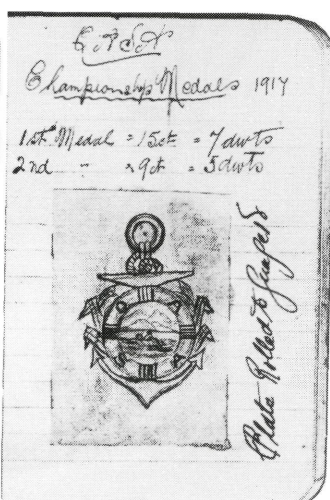 Championship Medals 1917
1st Medal = 15ct = 7 dwts
2nd " = 9ct = 5 dwts
O A
S A
Plate Rolled to Gauge 8